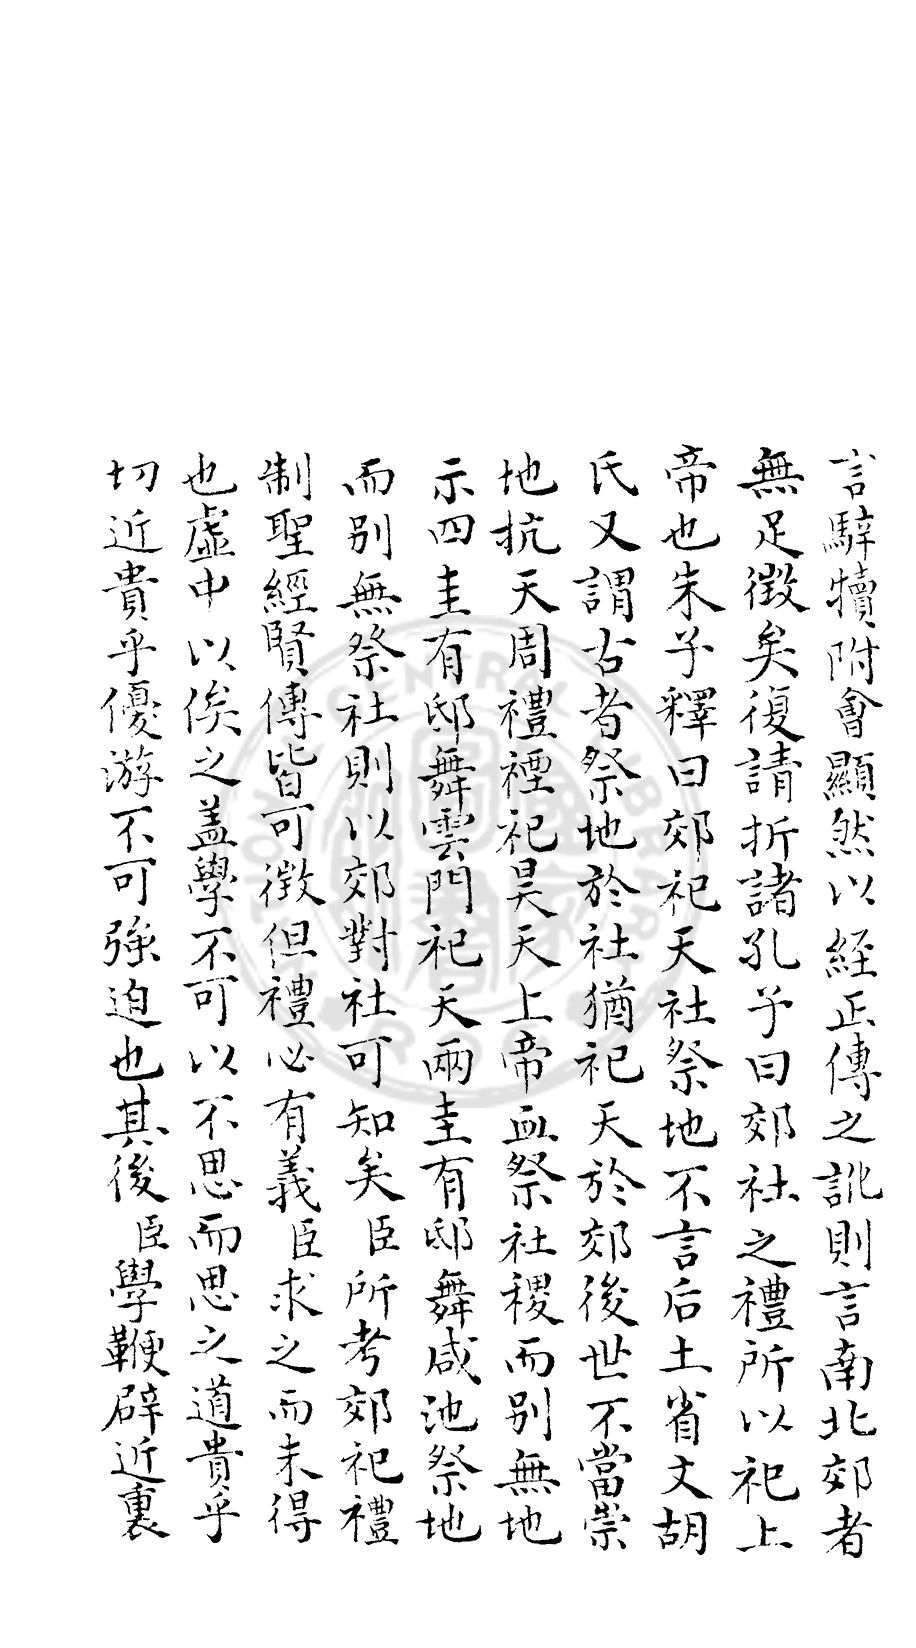 言騂犢附會顯然以経正傳之訛則言南北郊者
無足徴矣復請折諸孔子曰郊社之禮所以祀上
帝也朱子釋曰郊祀天社祭地不言后土省文胡
氏又謂古者祭地於社猶祀天於郊後世不當崇
地抗天周禮禋祀昊天上帝血祭社稷而别無地
示四圭有邸舞雲門祀天兩圭有邸舞咸池祭地
而别無祭社則以郊對社可知矣臣所考郊祀禮
制聖經賢傳皆可徴但禮必有義臣求之而未得
也虛中以俟之盖學不可以不思而思之道貴乎
切近貴乎優游不可強迫也其後臣學鞭辟近裏
CENTRAL LIBRARY